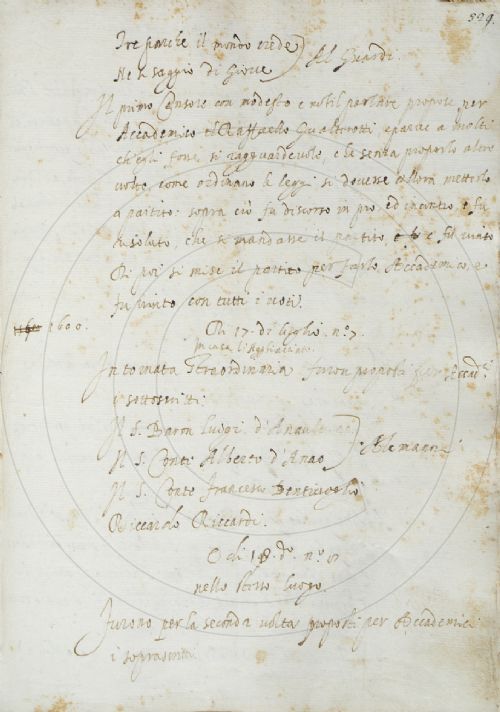 529.
Tre parche il mondo crede
Ne saggio di Giove
Al Guardi.
Il primo Consolo con modesto e nobil parlare propose per
Accademico Raffaello Gualterotti, e parve a molti
ch'egli fosse sì ragguardevole, che senza proporlo altre
volte, come ordinano le leggi si dovesse allora metterlo
a partito: sopra ciò fu discorso in pro, ed incontro e fu
risoluto, che si mandasse il partito, e fu vinto
Di poi si mise il partito per farlo Accademico, e
fu vinto con tutti i voti.
1600.
Di 17. di luglio. n.º 7.
In casa l'
In tornata straordinaria furon proposti per Accad.ci
i sottoscritti:
Il S. Baron Luigi
Il S. Conte Alberto d'Anao
Alemanni
Il S. Conte Francesco Bentivoglio
Riccardo Riccardi.
E di 18. d.º n.º
nello stesso luogo.
Furono per la seconda volta proposti per Accademici
i soprascritti